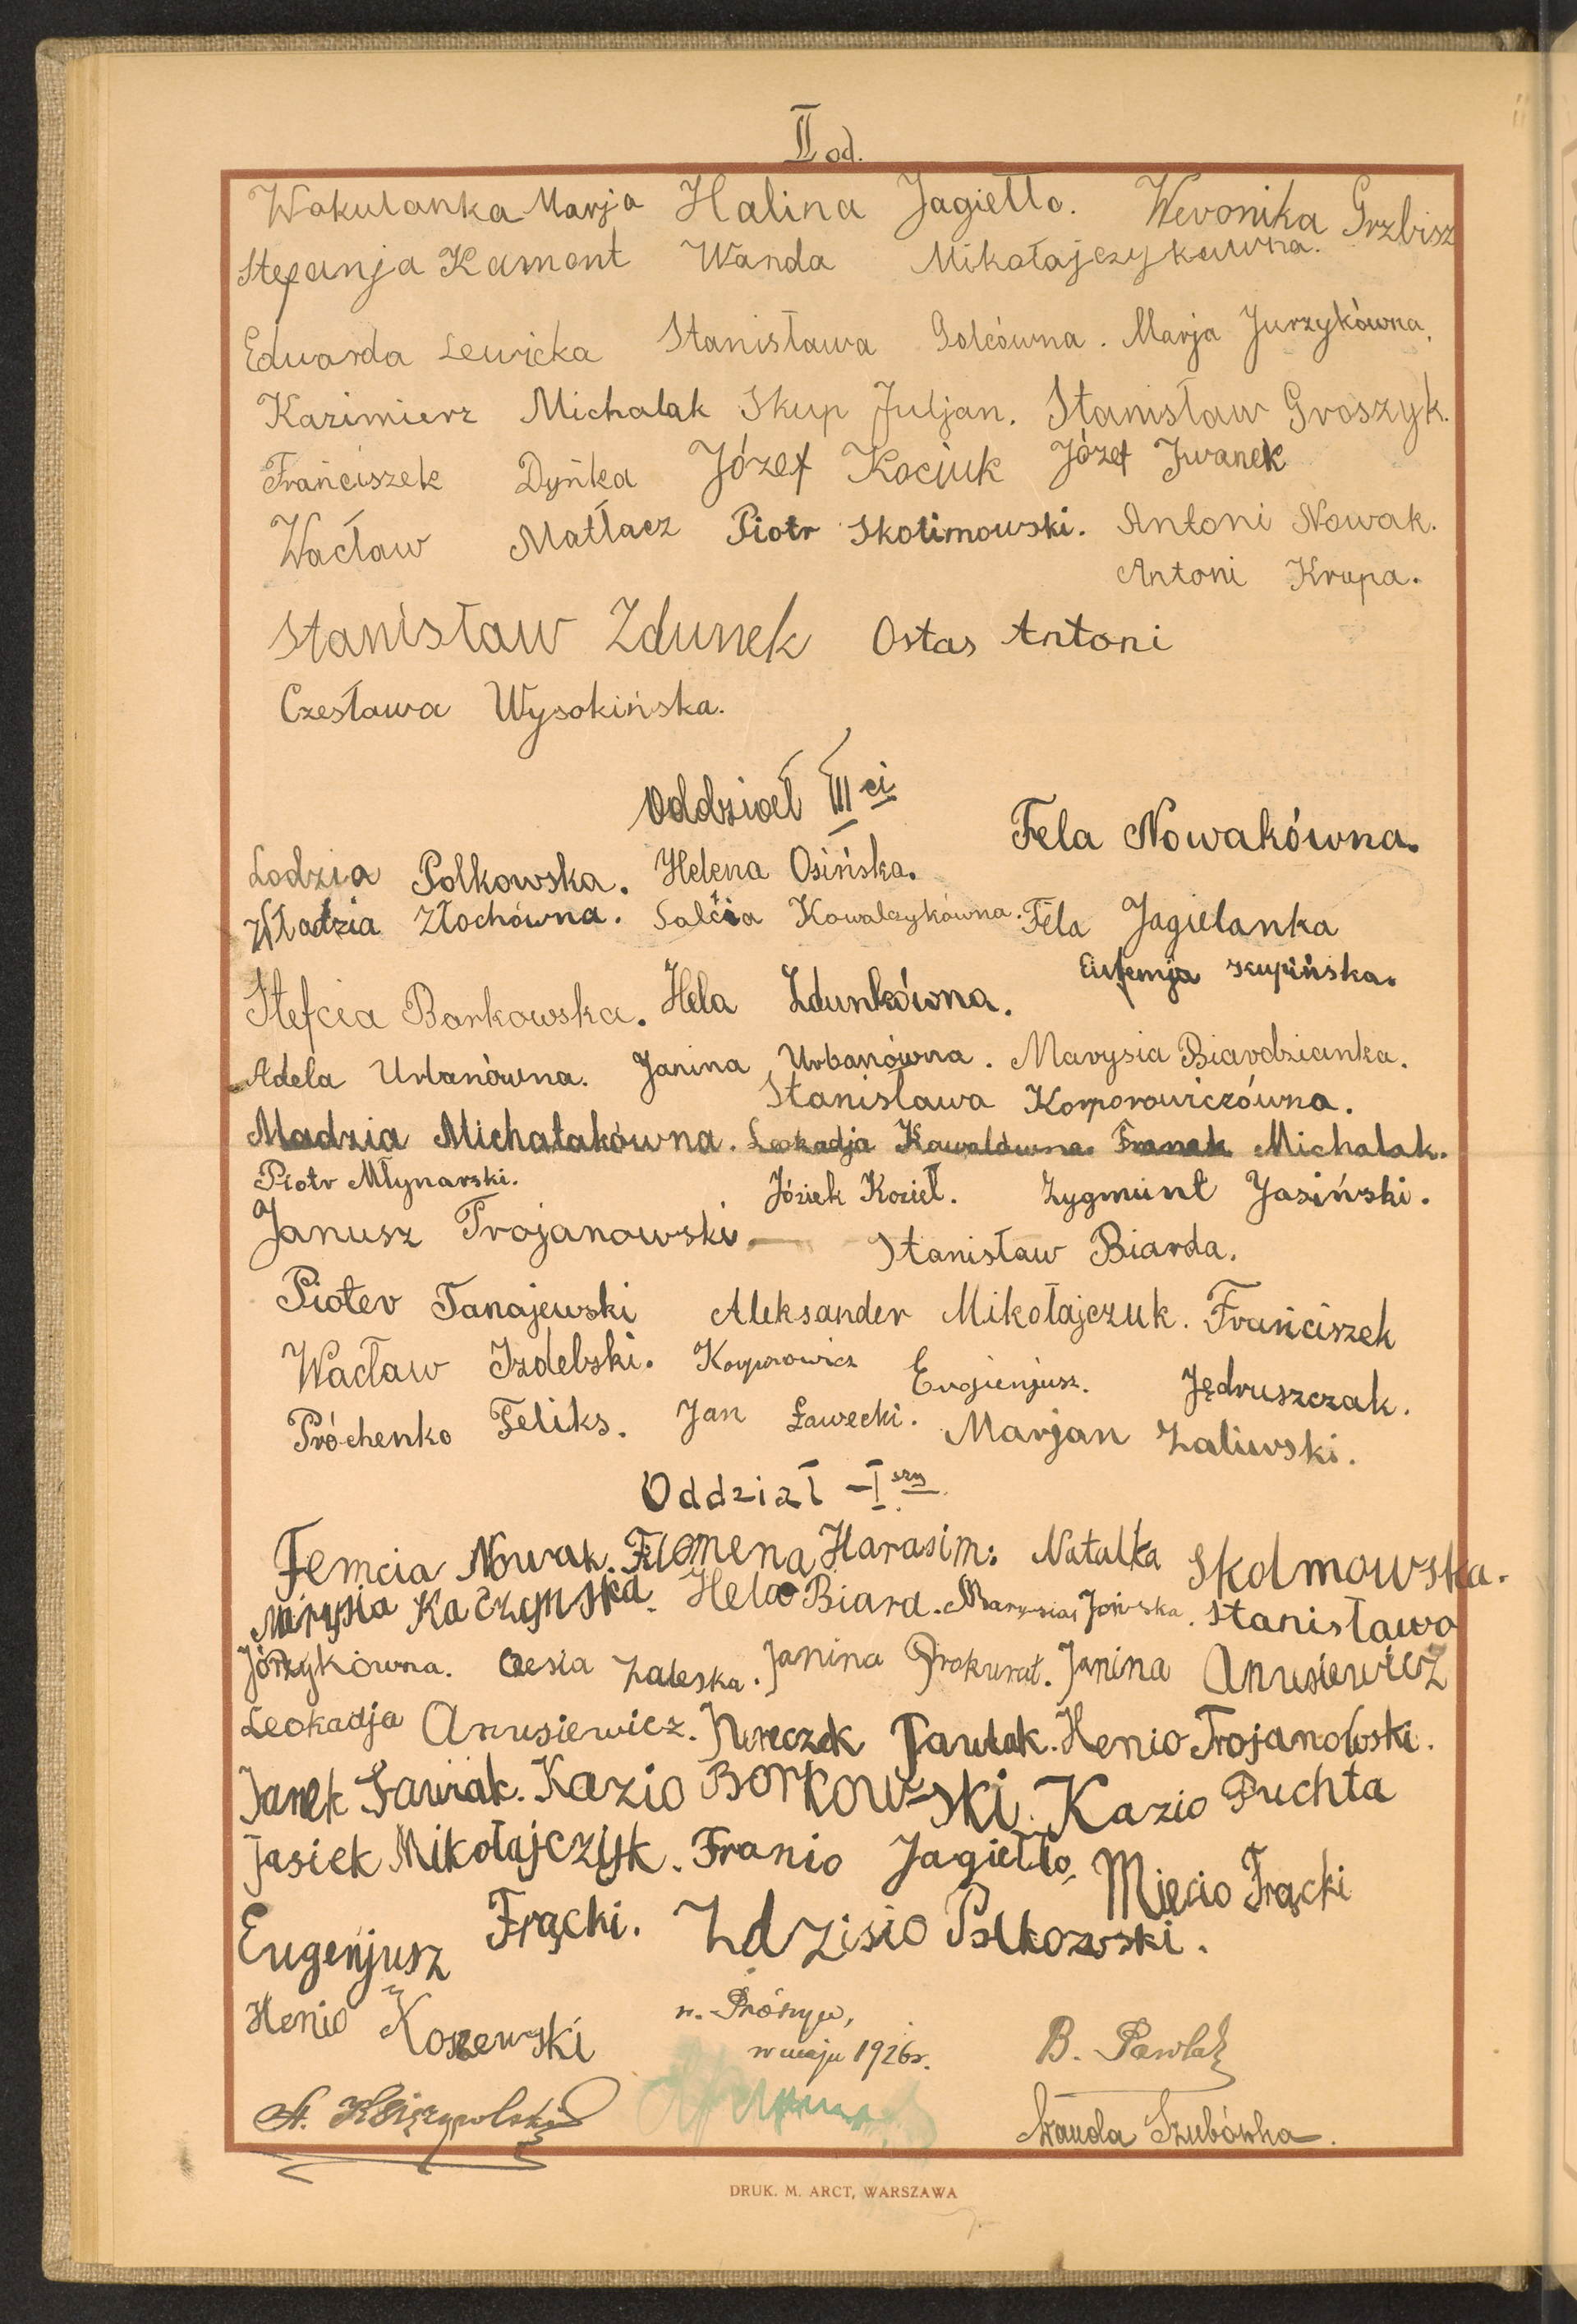 II od.
Wakulanka Marja Halina Jagiełło. Weronika Grzbisz
Stefanja Kamont Wanda Mikołajczykówna.
Edwarda Lewicka Stanisława Golcówna. Marja Jurzykówna.
Kazimierz Michalak Skup Juljan. Stanisław Groszyk.
Franciszek Dyńka Józef Kociuk Józef Iwanek
Wacław Matłacz Piotr Skolimowski. Antoni Nowak.
Antoni Krupa.
Stanisław Zdunek Ostas Antoni
Czesława Wysokińska.
Oddział III ci
Fela Nowakówna.
Lodzia Polkowska. Helena Osińska.
Władzia Złochówna. Salcia Kowalczykówna. Fela Jagielanka
Eufemja Skupińska.
Stefcia Borkowska. Hela Zdunkówna.
Adela Urbanówna. Janina Urbanówna. Marysia Biardzianka.
Stanisława Korporowiczówna.
Madzia Michalakówna. Leokadja Kowalówna. Franek Michalak.
Piotr Młynarski. Józiek Kozieł. Zygmunt Jasiński.
Janusz Trojanowski. Stanisław Biarda.
Pioter Tanajewski Aleksander Mikołajczuk. Franciszek
Wacław Izdebski. Korporowicz Eugienjusz. Jędruszczak.
Próchenko Feliks. Jan Ławecki. Marjan Zaliwski.
Oddział - I szy
Femcia Nowak. Filomena Harasim. Natalka Skolmowska.
Marysia Kaczyńska. Hela Biard. Marysia Stanisława
Jórzykówna. Czesia Zaleska. Janina Prokurat. Janina Anusiewicz
Leokadja Anusiewicz. Jureczek Pawlak. Henio Trojanowski.
Janek Kazio Borkowski. Kazio Puchta
Jasiek Mikołajczyk. Franio Jagiełło. Miecio Frącki
Eugenjusz Frącki. Zdzisio Polkowski.
Henio Koszewski
w maju 1926 r. B. Pawlak
St. Księżopolski Wanda Szubówna.
DRUK. M. ARCT, WARSZAWA